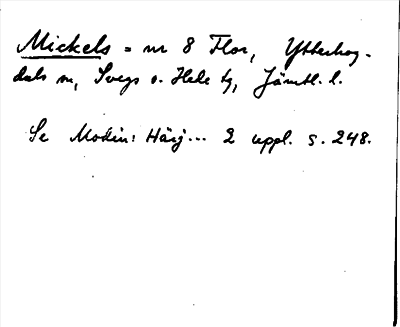 Mickels = nr 8 Flor, Ytterhog-
dals sn, Svegs o. Hede tg, Jämtl. l.
Se Modin: Härj... 2 uppl. s. 248.